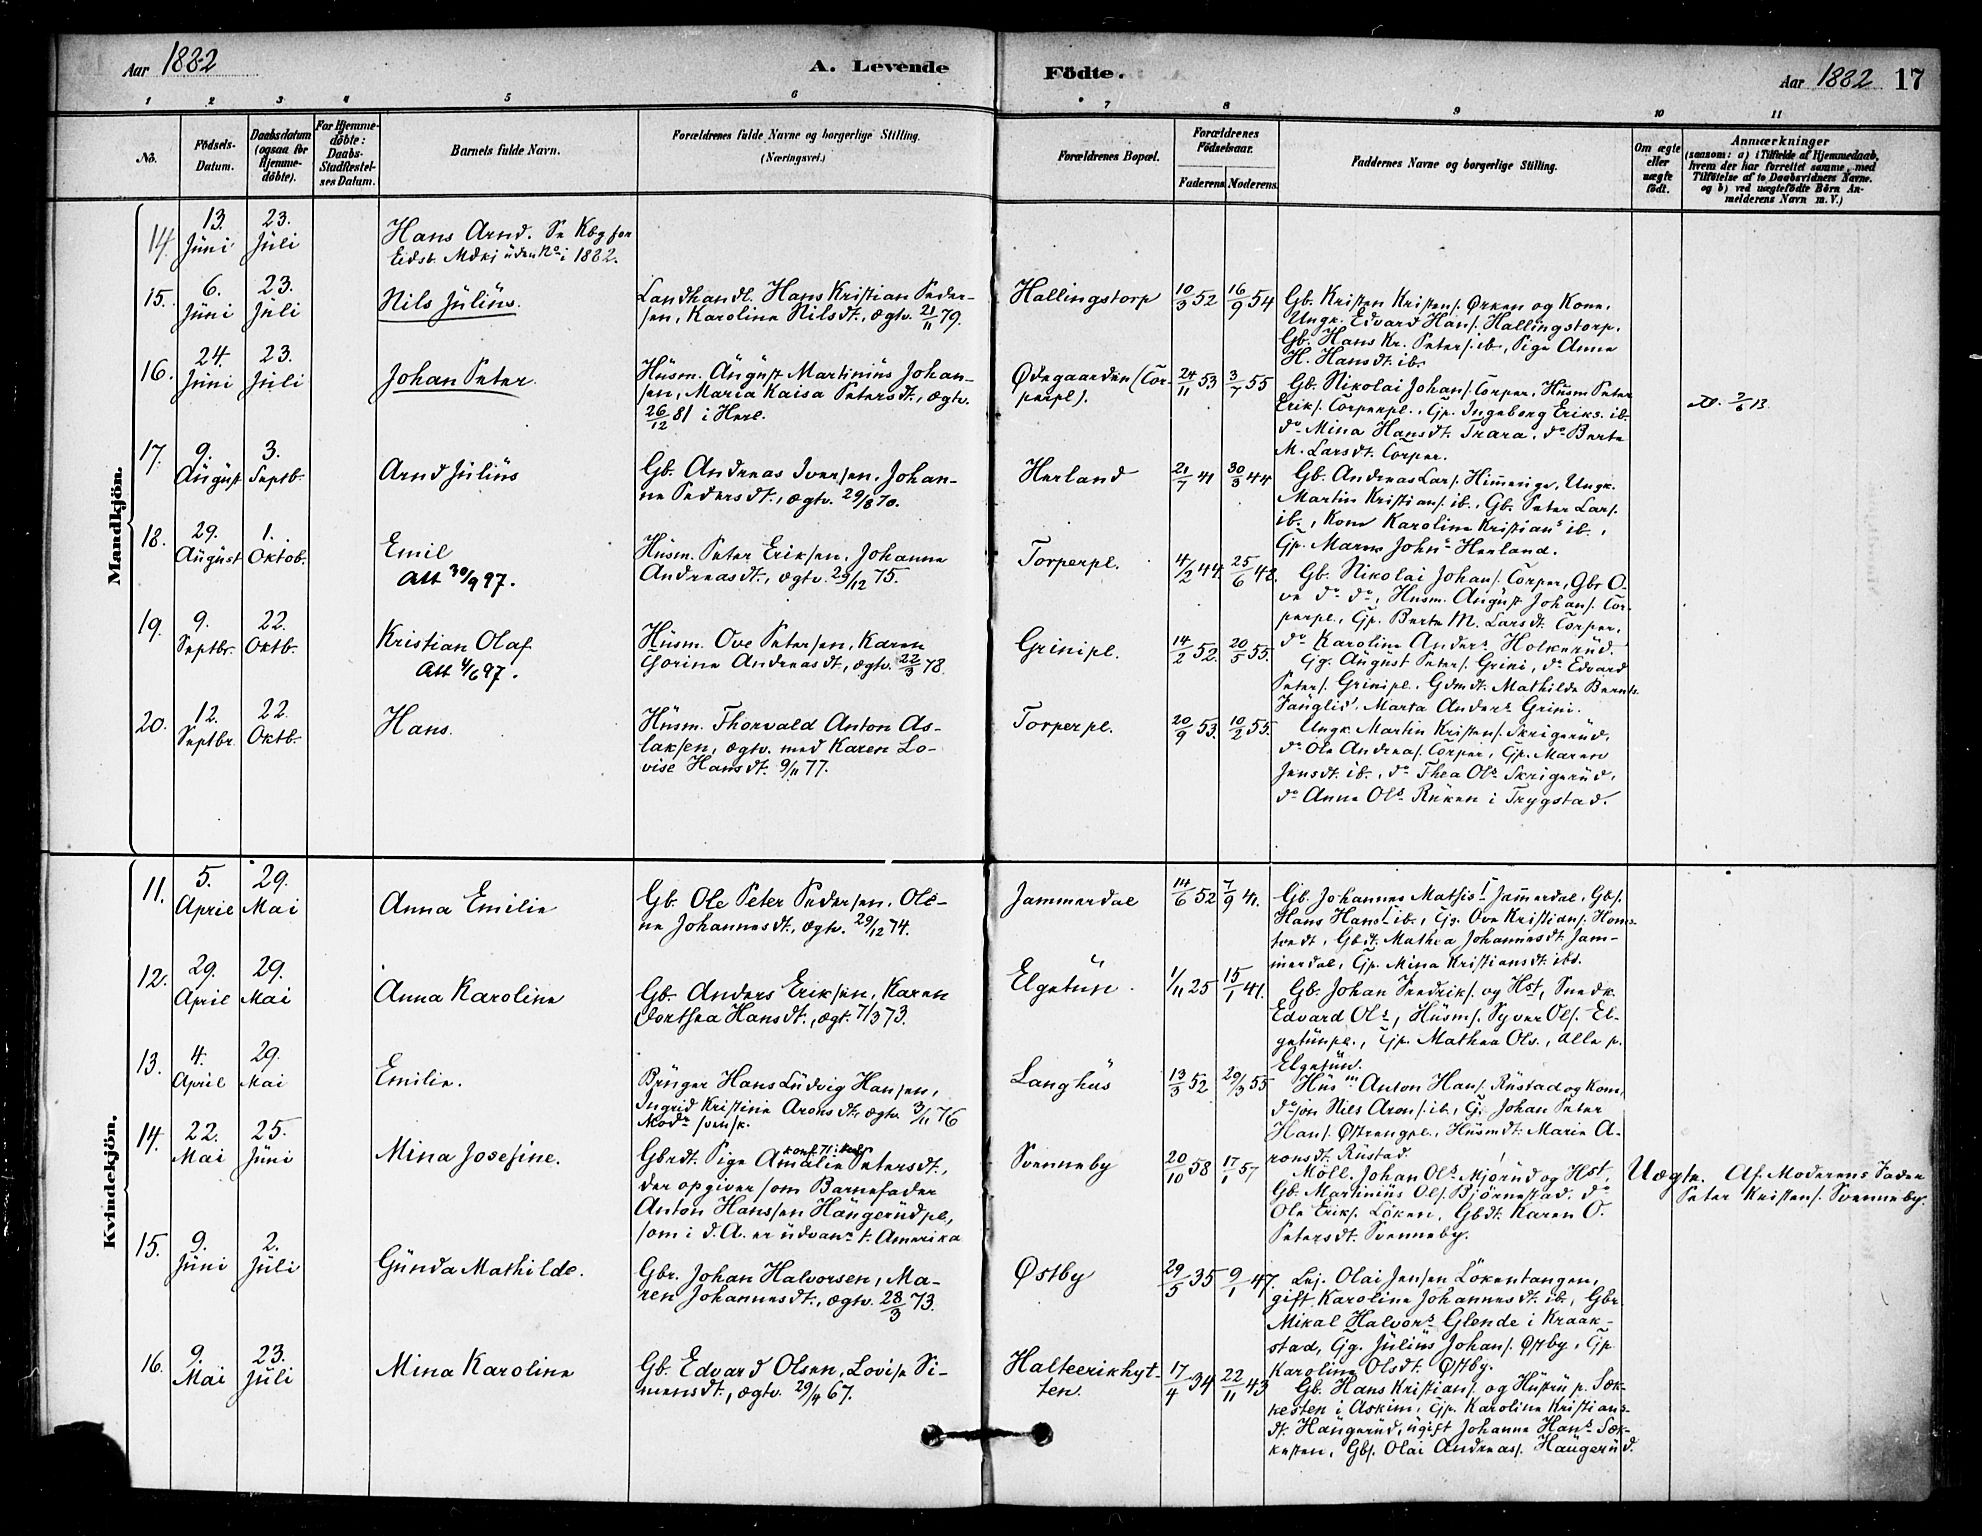 Aar 1882
A. Levende
Födte.
Aar 1882 17
1 2 3 4 5 6 7 8 9 10 11
No.
Födsels-
Datum.
Daabsdatum
(ogsaa for
Hjemme-
döbte).
For Hjemme-
döbte:
Daabs-
Stadfæstel-
ses Datum.
Barnets fulde Navn.
Forældrenes fulde Navne og borgerlige Stilling.
(Næringsvei.)
Forældrenes Bopæl.
Forældrenes
Födselsaar.
Faderens. Moderens.
Faddernes Navne og borgerlige Stilling.
Om ægte
eller
uægte
födt.
Anmærkninger
(saasom: a) i Tilfælde af Hjemmedaab,
hvem der har forrettet samme, med
Tilföielse af to Daabsvidners Navne.
og b) ved uægtefödte Börn An-
melderens Navn m. V.)
Mandkjön.
14. 13. Juni 23. Juli
Hans Arnd. Se Kbg for
Eidsb. Mdkj uden No i 1882.
15. 6. Juni 23. Juli
Nils Julius.
Landhandl. Hans Kristian Peder-
sen, Karoline Nilsdt., ægtv. 21/11 79.
Hallingstorp
10/3 52 16/9 54
Gb. Kristen Kristens. Ørken og Kone,
Ungk. Edvard Hans. Hallingstorp.
Gb. Hans Kr. Peters. ib., Pige Anne
H. Hansdt. ib.
16. 24. Juni 23. Juli
Johan Peter.
Husm. August Martinius Johan-
sen, Maria Kaisa Petersdt., ægtv.
26/12 81 i Herl.
Ødegaarden (Tor-
perpl).
24/11 53 3/7 55
Gb. Nikolai Johans. Torper, Husm Peter
Eriks. Torperpl., Gp. Ingeborg Eriks. ib.
do Mina Hansdt. Trara, do Berte
M. Larsdt. Torper.
2/6 13.
17. 9. August 3. Septb.
Arnd Julius
Gb. Andreas Iversen, Johan-
ne Pedersdt., ægtv. 29/8 70.
Herland
21/7 41 30/3 44
Gb. Andreas Lars. Himmerige, Ungk.
Martin Kristians. ib., Gb. Peter Lars.
ib., Kone Karoline Kristians ib.,
Gp. Maren Johns Herland.
18. 29. August 1. Oktob.
Emil
Att 30/9 97.
Husm. Peter Eriksen, Johanne
Andreasdt., ægtv. 29/12 75.
Torperpl.
4/2 44. 25/6 48.
Gb. Nikolai Johans. Torper, Gbr O-
ve do do, Husm. August Johans. Tor-
perpl., Gp. Berte M. Larsdt Torper,
do Karoline Anders Holkerud.
19. 9. Septbr. 22. Oktb.
Kristian Olaf
Att 4/6 97.
Husm. Ove Petersen, Karen
Thorine Andreasdt., ægtv. 22/3 78.
Grinipl.
14/2 52. 20/5 55.
Gg. August Peters. Grini, do Edvard
Peters. Grinipl., Gdmdt. Mathilde Bernts
Fanglid, Marta Anders Grini.
20. 12. Septbr. 22. Oktb.
Hans.
Husm. Thorvald Anton As-
laksen, ægtv. med Karen Lo-
vise Hansdt. 9/11 77.
Torperpl.
20/9 53. 10/2 55.
Ungk. Martin Kristens. Skrigerud,
do Ole Andreas. Torper, Gp. Maren
Jensdt. ib., do Thea Ols Skrigerud,
do Anne Ols Ruken i Trygstad.
Kvindekjön.
11. 5. April 29. Mai
Anna Emilie
Gb. Ole Peter Pedersen, Ole-
ne Johannesdt., ægtv. 29/12 74.
Jammerdal
14/6 52 7/9 41.
Gb. Johannes Mathis. Jammerdal, Gbs.
Hans Hans. ib., Gg. Ove Kristians. Hom-
tvedt, Gbdt. Mathea Johannesdt. Jam-
merdal, Gp. Mina Kristiansdt. ibd.
12. 29. April 29. Mai
Anna Karoline
Gb. Anders Eriksen, Karen
Dorthea Hansdt., ægt. 7/3 73.
Elgetun.
1/11 25 15/1 41.
Gb. Johan Fredriks. og Hst, Snedk.
Edvard Ols, Husms. Syver Ols. El-
getunpl., Gp. Mathea Ols., alle p.
Elgetun.
13. 4. April 29. Mai
Emilie.
Bruger Hans Ludvig Hansen,
Ingrid Kristine Aronsdt, ægtv. 3/11 76
Modr svensk.
Langhus
13/3 52 29/3 55
Husm Anton Hans. Rustad og Kone,
do søn Nils Arons. ib., G. Johan Peter
Hans. Østrengpl., Husmdt. Marie A-
ronsdt. Rustad.
14. 22. Mai 25. Juni
Mina Josefine.
Gbrdt. Pige Amalie Petersdt.,
der opgiver som Barnefader
Anton Hanssen Haugerudpl,
som i d. A. er udvanr t. Amerika
Svenneby
20/10 58 17/1 57
Möll. Johan Ols Mjørud og Hst,
Gb. Martinius Ols. Bjørnestad, do
Ole Eriks. Løken, Gbdt. Karen O.
Petersdt. Svenneby.
Uægte. Af Moderens Fader
Peter Kristens. Svenneby.
15. 9. Juni 2. Juli
Gunda Mathilde.
Gbr. Johan Halvorsen, Ma-
ren Johannesdt., ægtv. 28/3 73.
Østby
29/5 35 9/1 47.
Lej. Olai Jensen Løkentangen,
gift Karoline Johannesdt ib., Gbr
Mikal Halvors Glende i Kraak-
stad, Gg. Julius Johans. Østby, Gp
Karoline Olsdt. Østby.
16. 9. Mai 23. Juli
Mina Karoline
Gb. Edvard Olsen, Lovise Si-
mensdt., ægtv. 29/4 67.
Halteerikhyt-
ten.
17/4 34 22/11 43
Gb. Hans Kristians. og Hustru p. Sæk-
kesten i Askim, Gp. Karoline Kristians-
dt. Haugerud, ugift Johanne Hans Sæk-
kesten, Gbs. Olai Andreass. Haugerud.